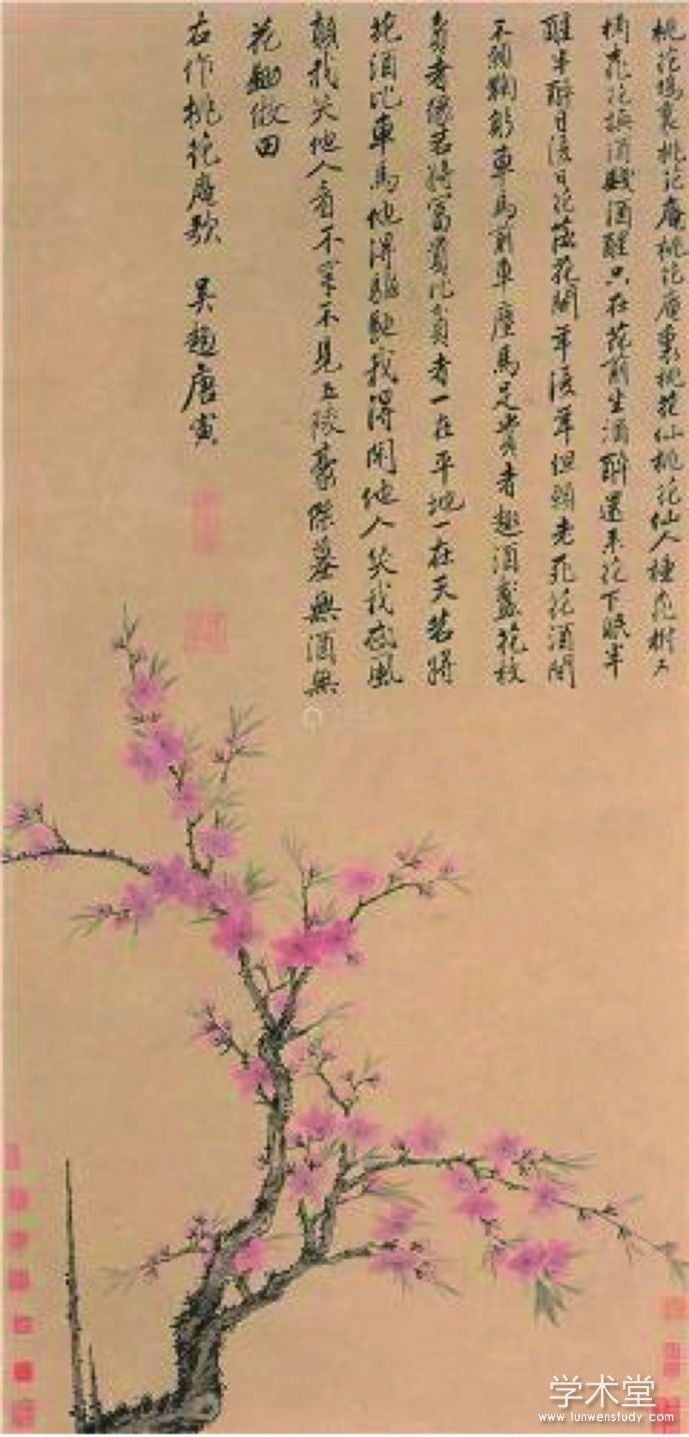 桃花塢裏桃花庵桃花庵裏桃花仙桃花仙人種桃樹又
摘桃花換酒錢酒醒只在花前坐酒醉還來花下眠半
醒半醉日復日花落花開年復年但願老死花酒間
不願鞠躬車馬前車塵馬足貴者趣酒盞花枝
貧者緣若將富貴比貧者一在平地一在天若將
花酒比車馬他得驅馳我得閒他人笑我忒風
顛我笑他人看不穿不見五陵豪傑墓無酒無
花鋤做田
右作桃花庵歌 吳趨唐寅
学术堂
www.lunwenstudy.com